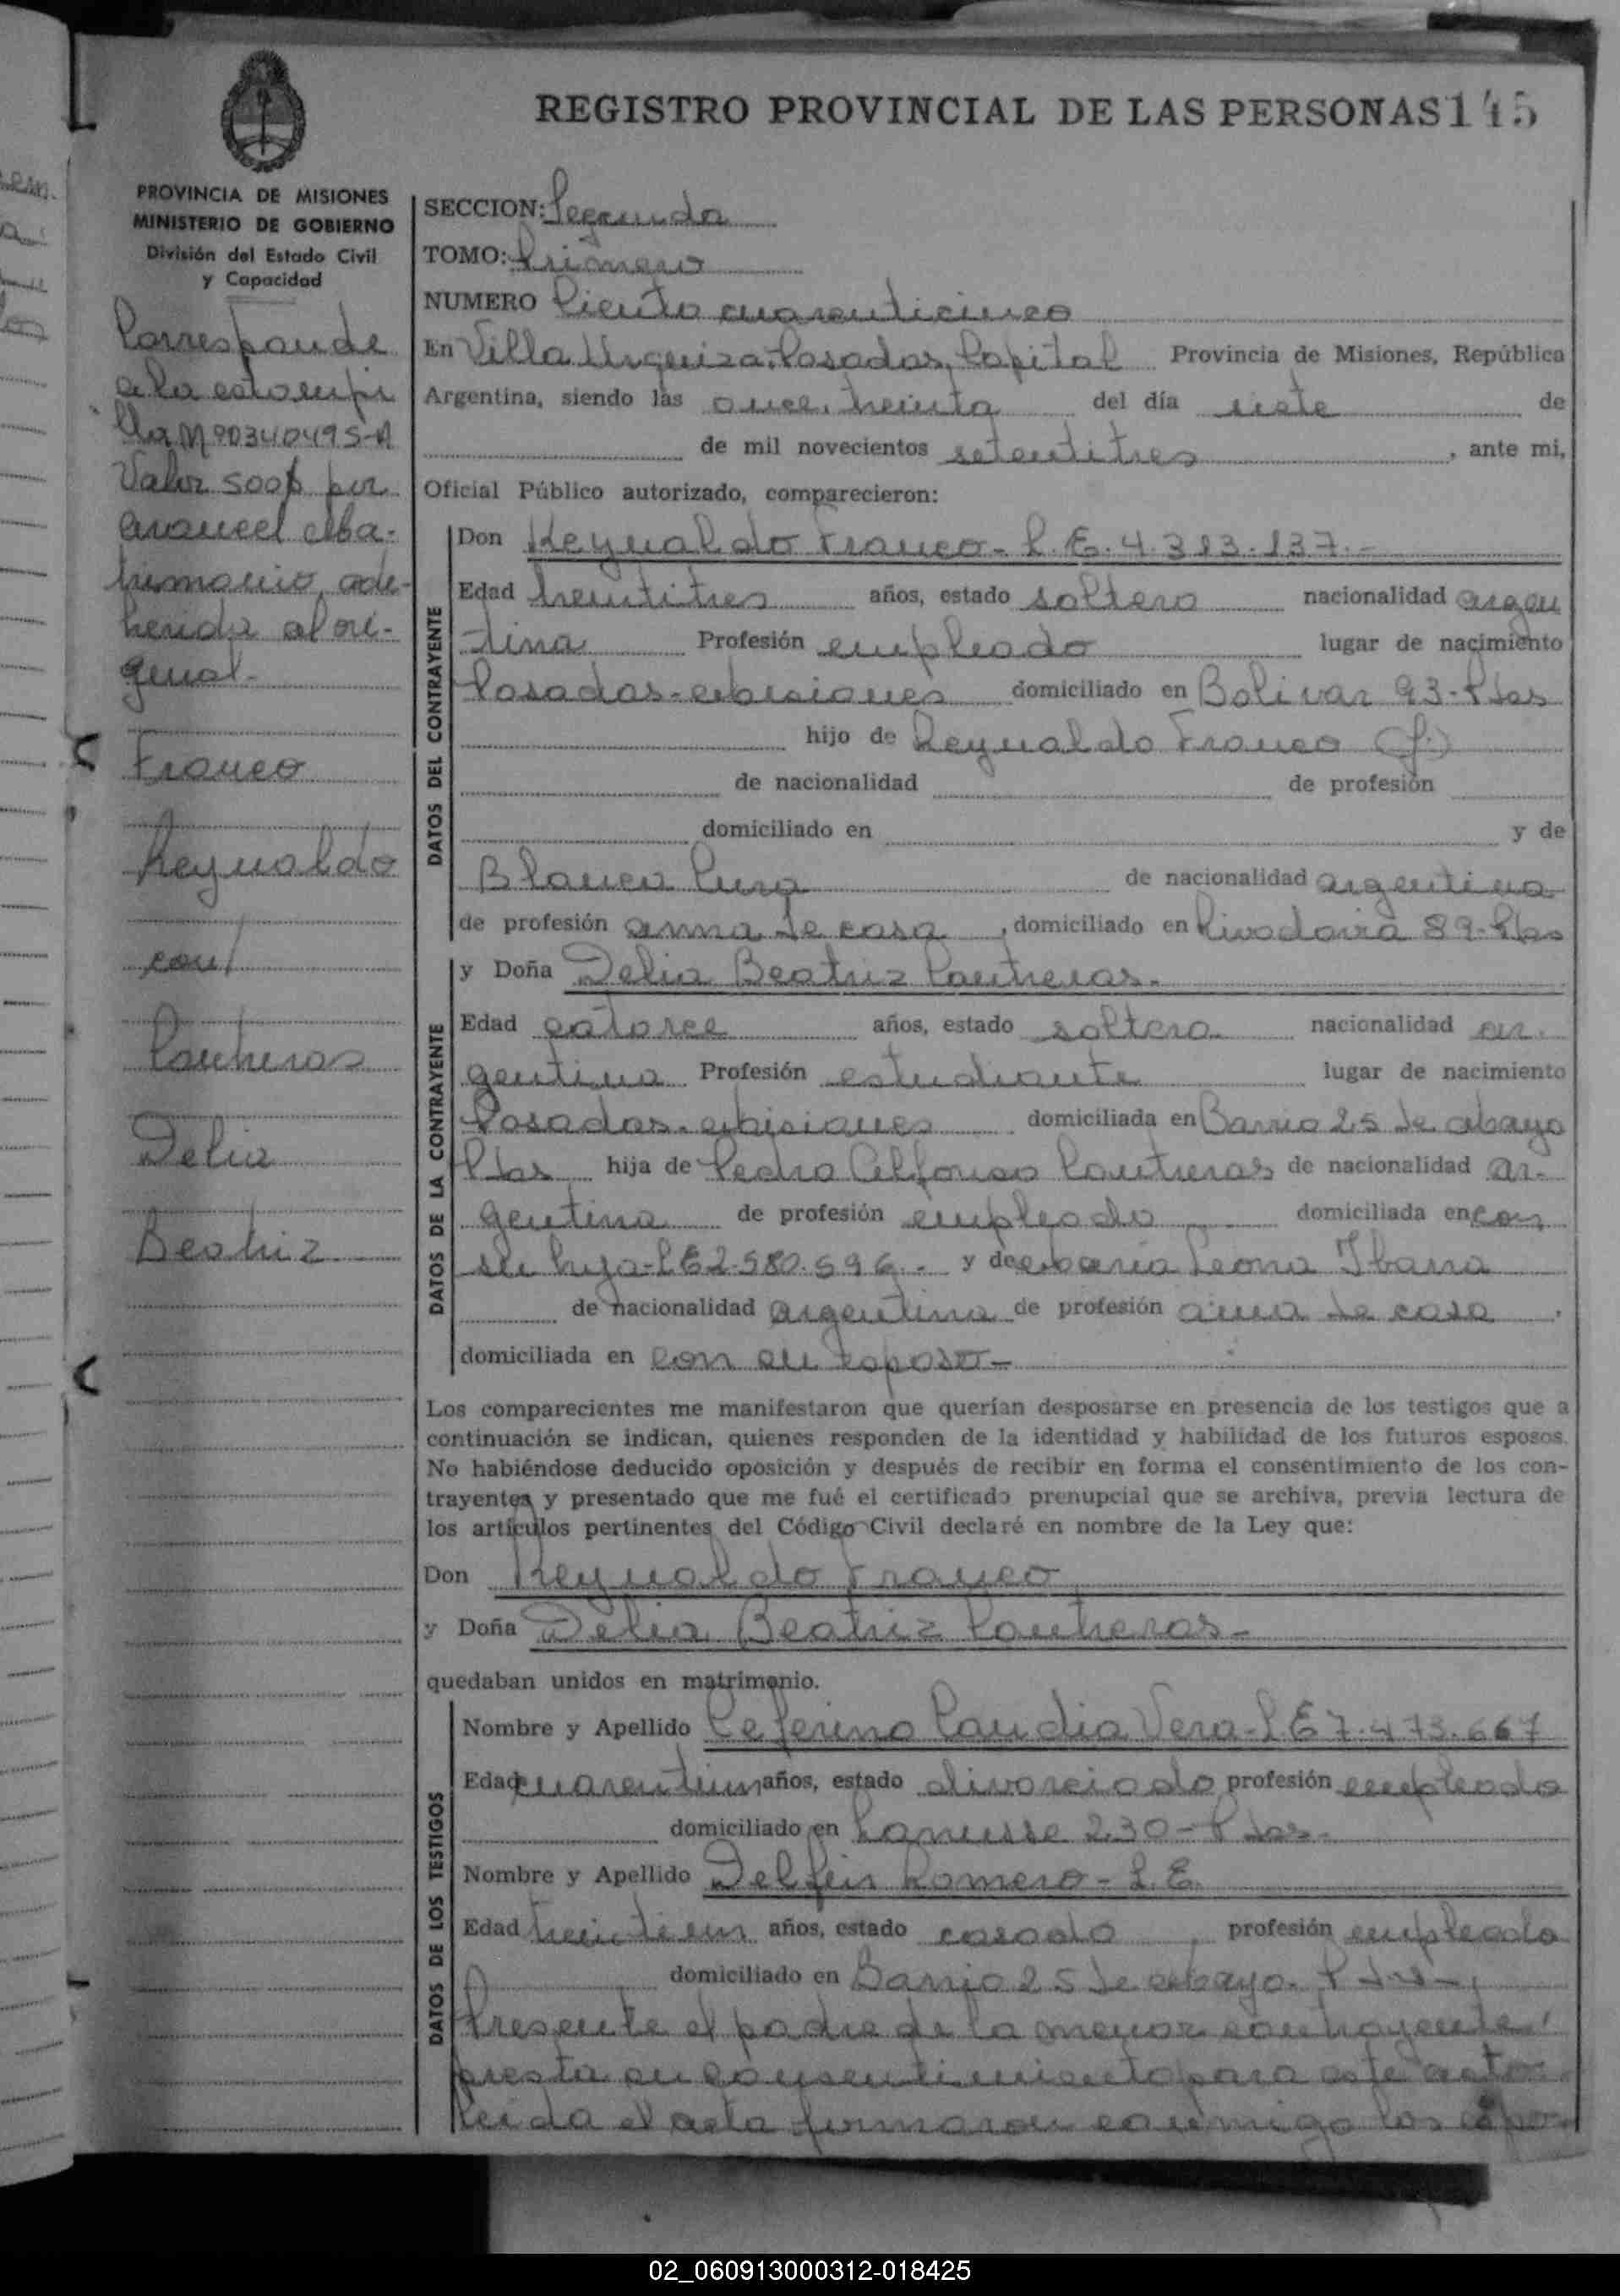 REGISTRO PROVINCIAL DE LAS PERSONAS 145
PROVINCIA DE MISIONES
MINISTERIO DE GOBIERNO
División del Estado Civil
y Capacidad
Corresponde
a la estampi
lla Nº 0340495-A
Valor 500$ por
arancel Ma-
trimonio, ade-
herida al ori-
ginal-
Franco
Reynaldo
con/
Contreras
Delia
Beatriz
SECCION: Segunda
TOMO: Primero
NUMERO Ciento cuarenticinco
En Villa Urquiza, Posadas, Capital Provincia de Misiones, República
Argentina, siendo las once, treinta del día siete de
de mil novecientos setentitres, ante mi,
Oficial Público autorizado, comparecieron:
DATOS DEL CONTRAYENTE
Don Reynaldo Franco- L.E. 4.313.137.-
Edad treintitres años, estado soltero nacionalidad argen
tina Profesión empleado lugar de nacimiento
Posadas-Misiones domiciliado en Bolivar 93-Pdas
hijo de Reynaldo Franco (f.)
de nacionalidad de profesión
domiciliado en y de
Blanca Cura de nacionalidad argentina
de profesión ama de casa, domiciliado en Rivadavia 89-Pdas
DATOS DE LA CONTRAYENTE
y Doña Delia Beatriz Contreras.-
Edad catorce años, estado soltera nacionalidad ar-
gentina Profesión estudiante lugar de nacimiento
Posadas-Misiones domiciliada en Barrio 25 de Mayo
Pdas hija de Pedro Alfonso Contreras de nacionalidad ar-
gentina de profesión empleado domiciliada en con
su hija-LE2.580.596.- y de Maria Leona Ibarra
de nacionalidad argentina de profesión ama de casa,
domiciliada en con su esposo-
Los comparecientes me manifestaron que querían desposarse en presencia de los testigos que a
continuación se indican, quienes responden de la identidad y habilidad de los futuros esposos.
No habiéndose deducido oposición y después de recibir en forma el consentimiento de los con-
trayentes y presentado que me fué el certificado prenupcial que se archiva, previa lectura de
los artículos pertinentes del Código Civil declaré en nombre de la Ley que:
Don Reynaldo Franco
y Doña Delia Beatriz Contreras-
quedaban unidos en matrimonio.
DATOS DE LOS TESTIGOS
Nombre y Apellido Ceferino Claudia Vera-L.E 7.473.667
Edad cuarentiun años, estado divorciado profesión empleado
domiciliado en Lanusse 230-Pdas-
Nombre y Apellido Delfin Romero- L.E.
Edad treintiun años, estado casado, profesión empleado
domiciliado en Barrio 25 de Mayo- Pdas-
Presente el padre de la menor contrayente,
presta su consentimiento para este acto
Leida el acta firmaron conmigo los espo-
02_060913000312-018425